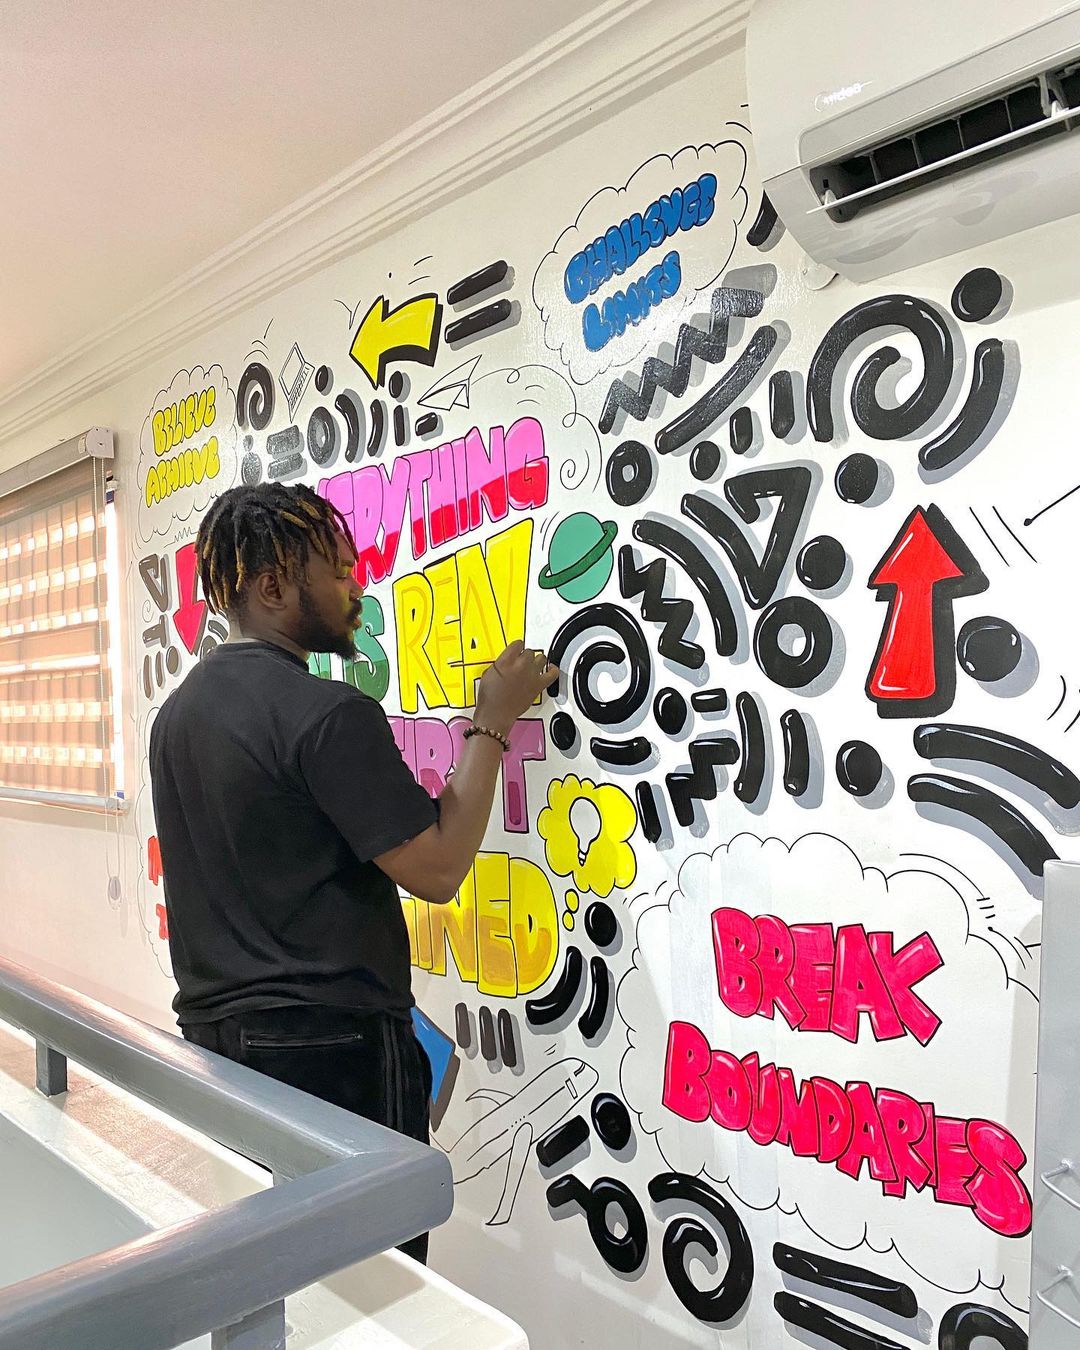 midea
CHALLENGE
LIMITS
BELIEVE
ACHIEVE
ERYTHING
IS REAL
FIRST
INED
BREAK
BOUNDARIES